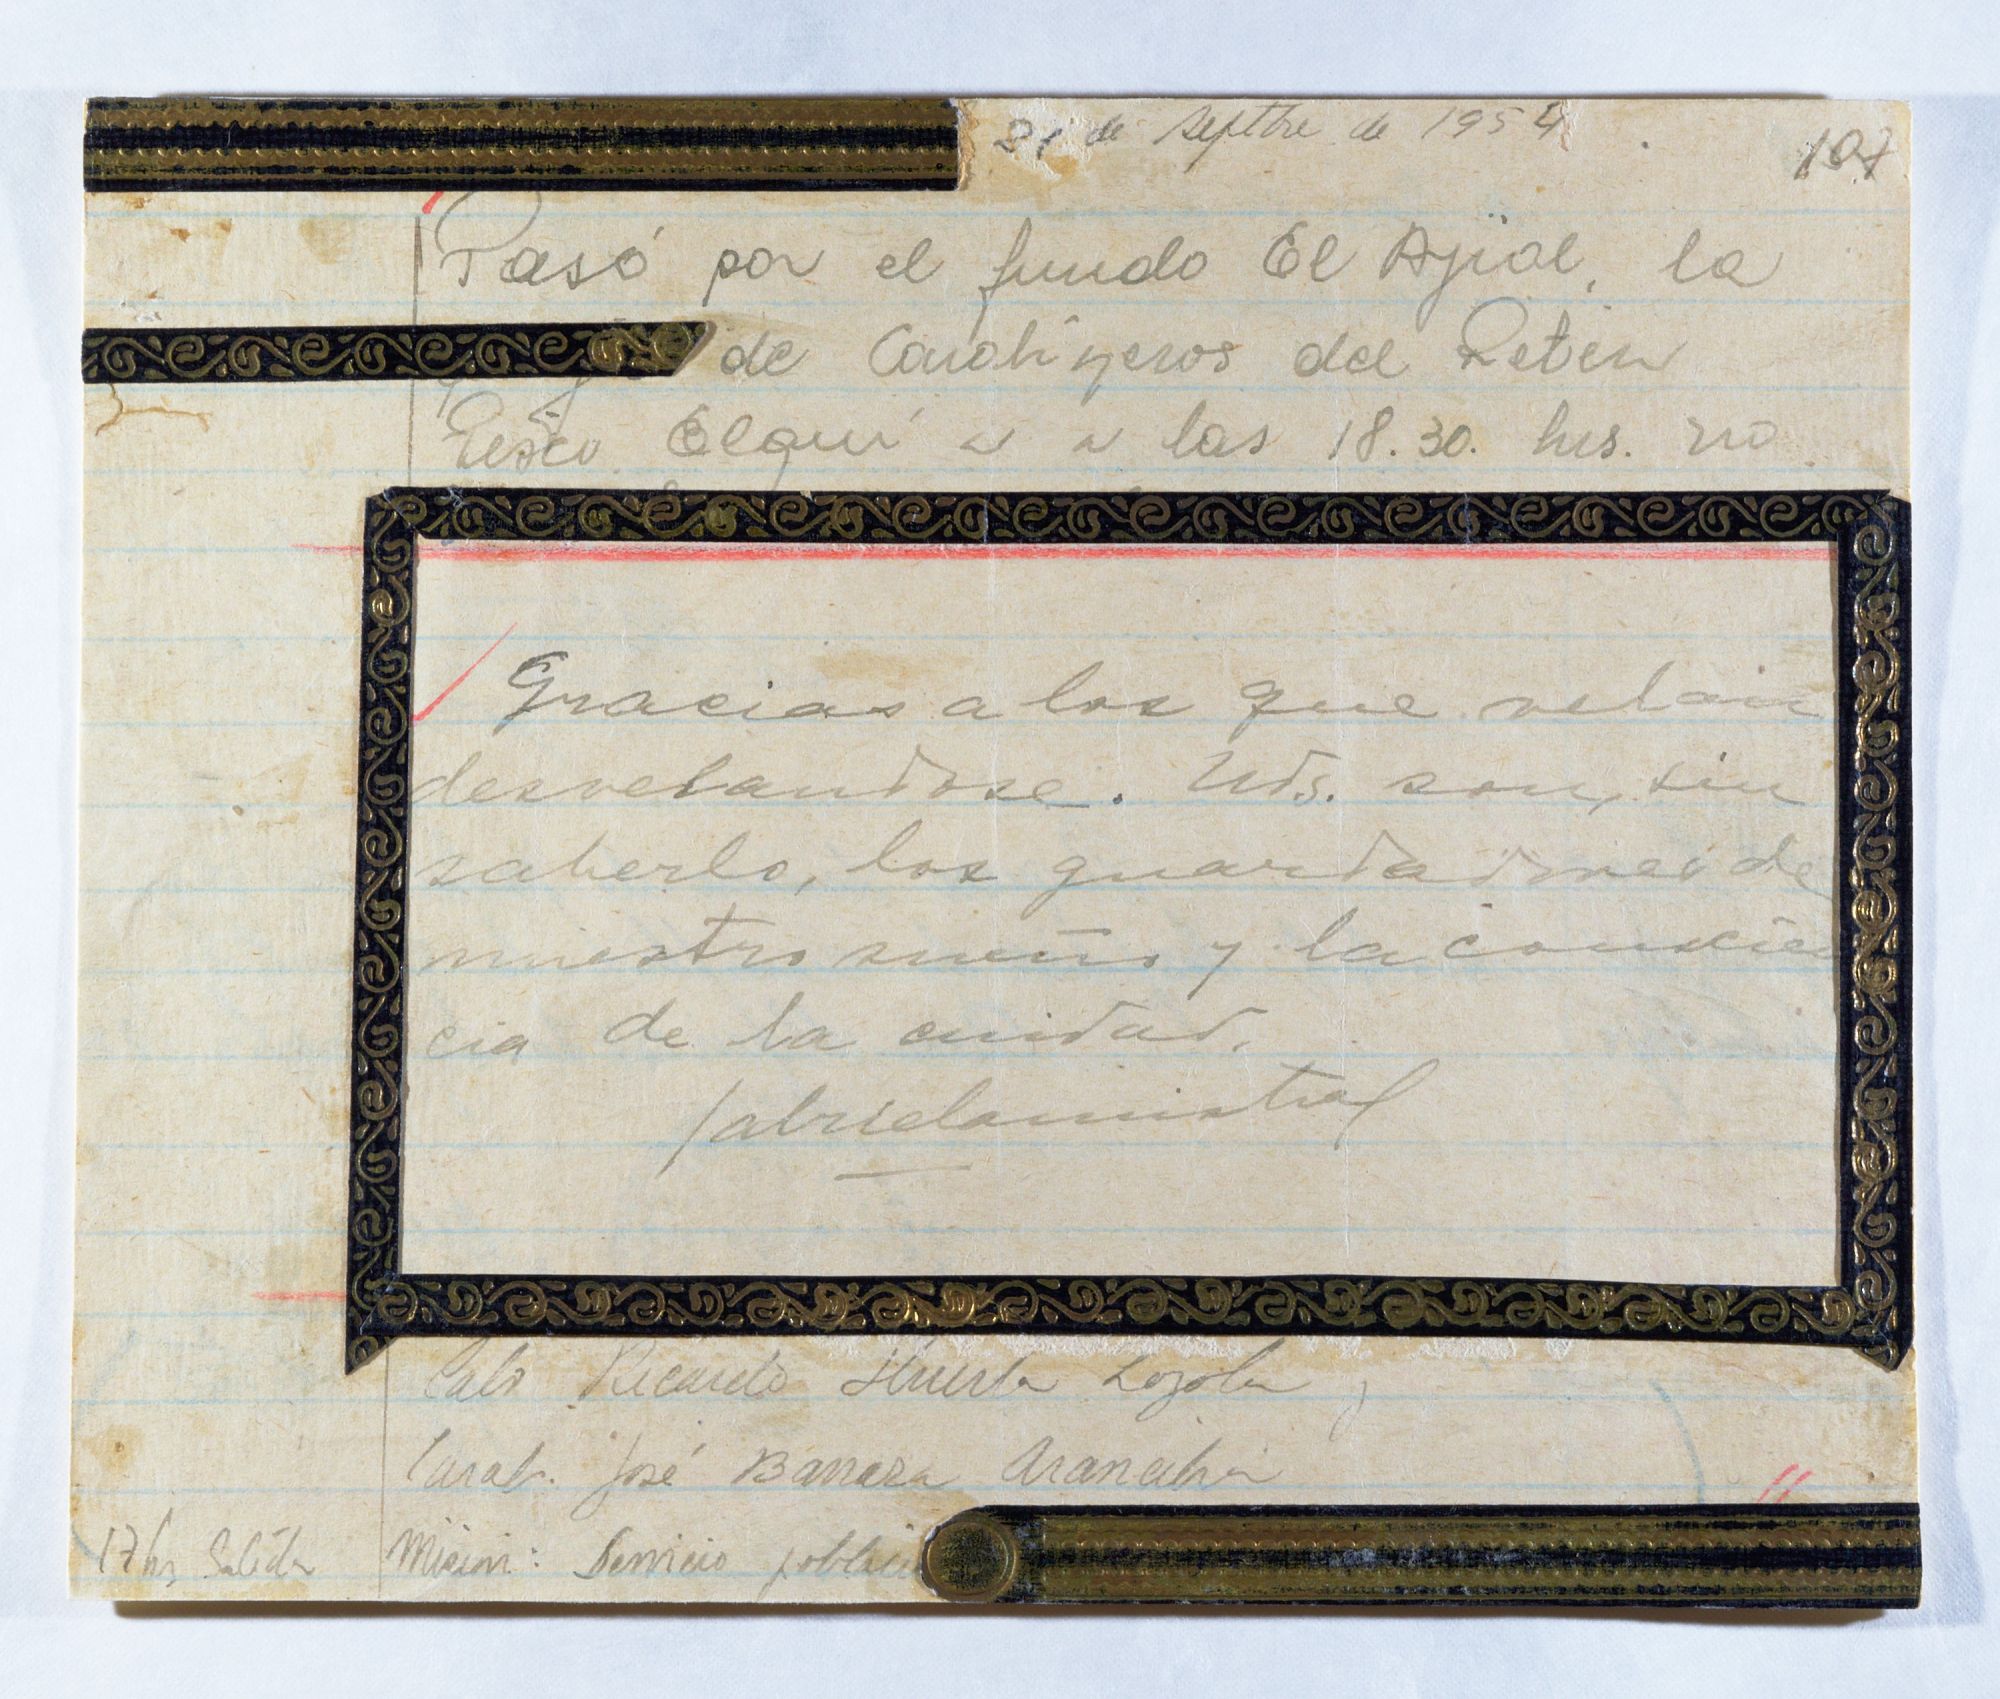 21 de Septbre de 1954
107
Pasó por el fundo El Ajial, la
de Carabineros del Retén
Pisco Elqui a las 18.30. hrs. no
Gracias a los que velan
desvelandose. Uds. son, sin
saberlo, los guardadores de
nuestro sueño y la concien
cia de la ciudad.
Gabrielamistral
Cabo Ricardo Huerta Loyola y
Carab. José Barraza Arancibia
17 hrs Salida Mision: Servicio público